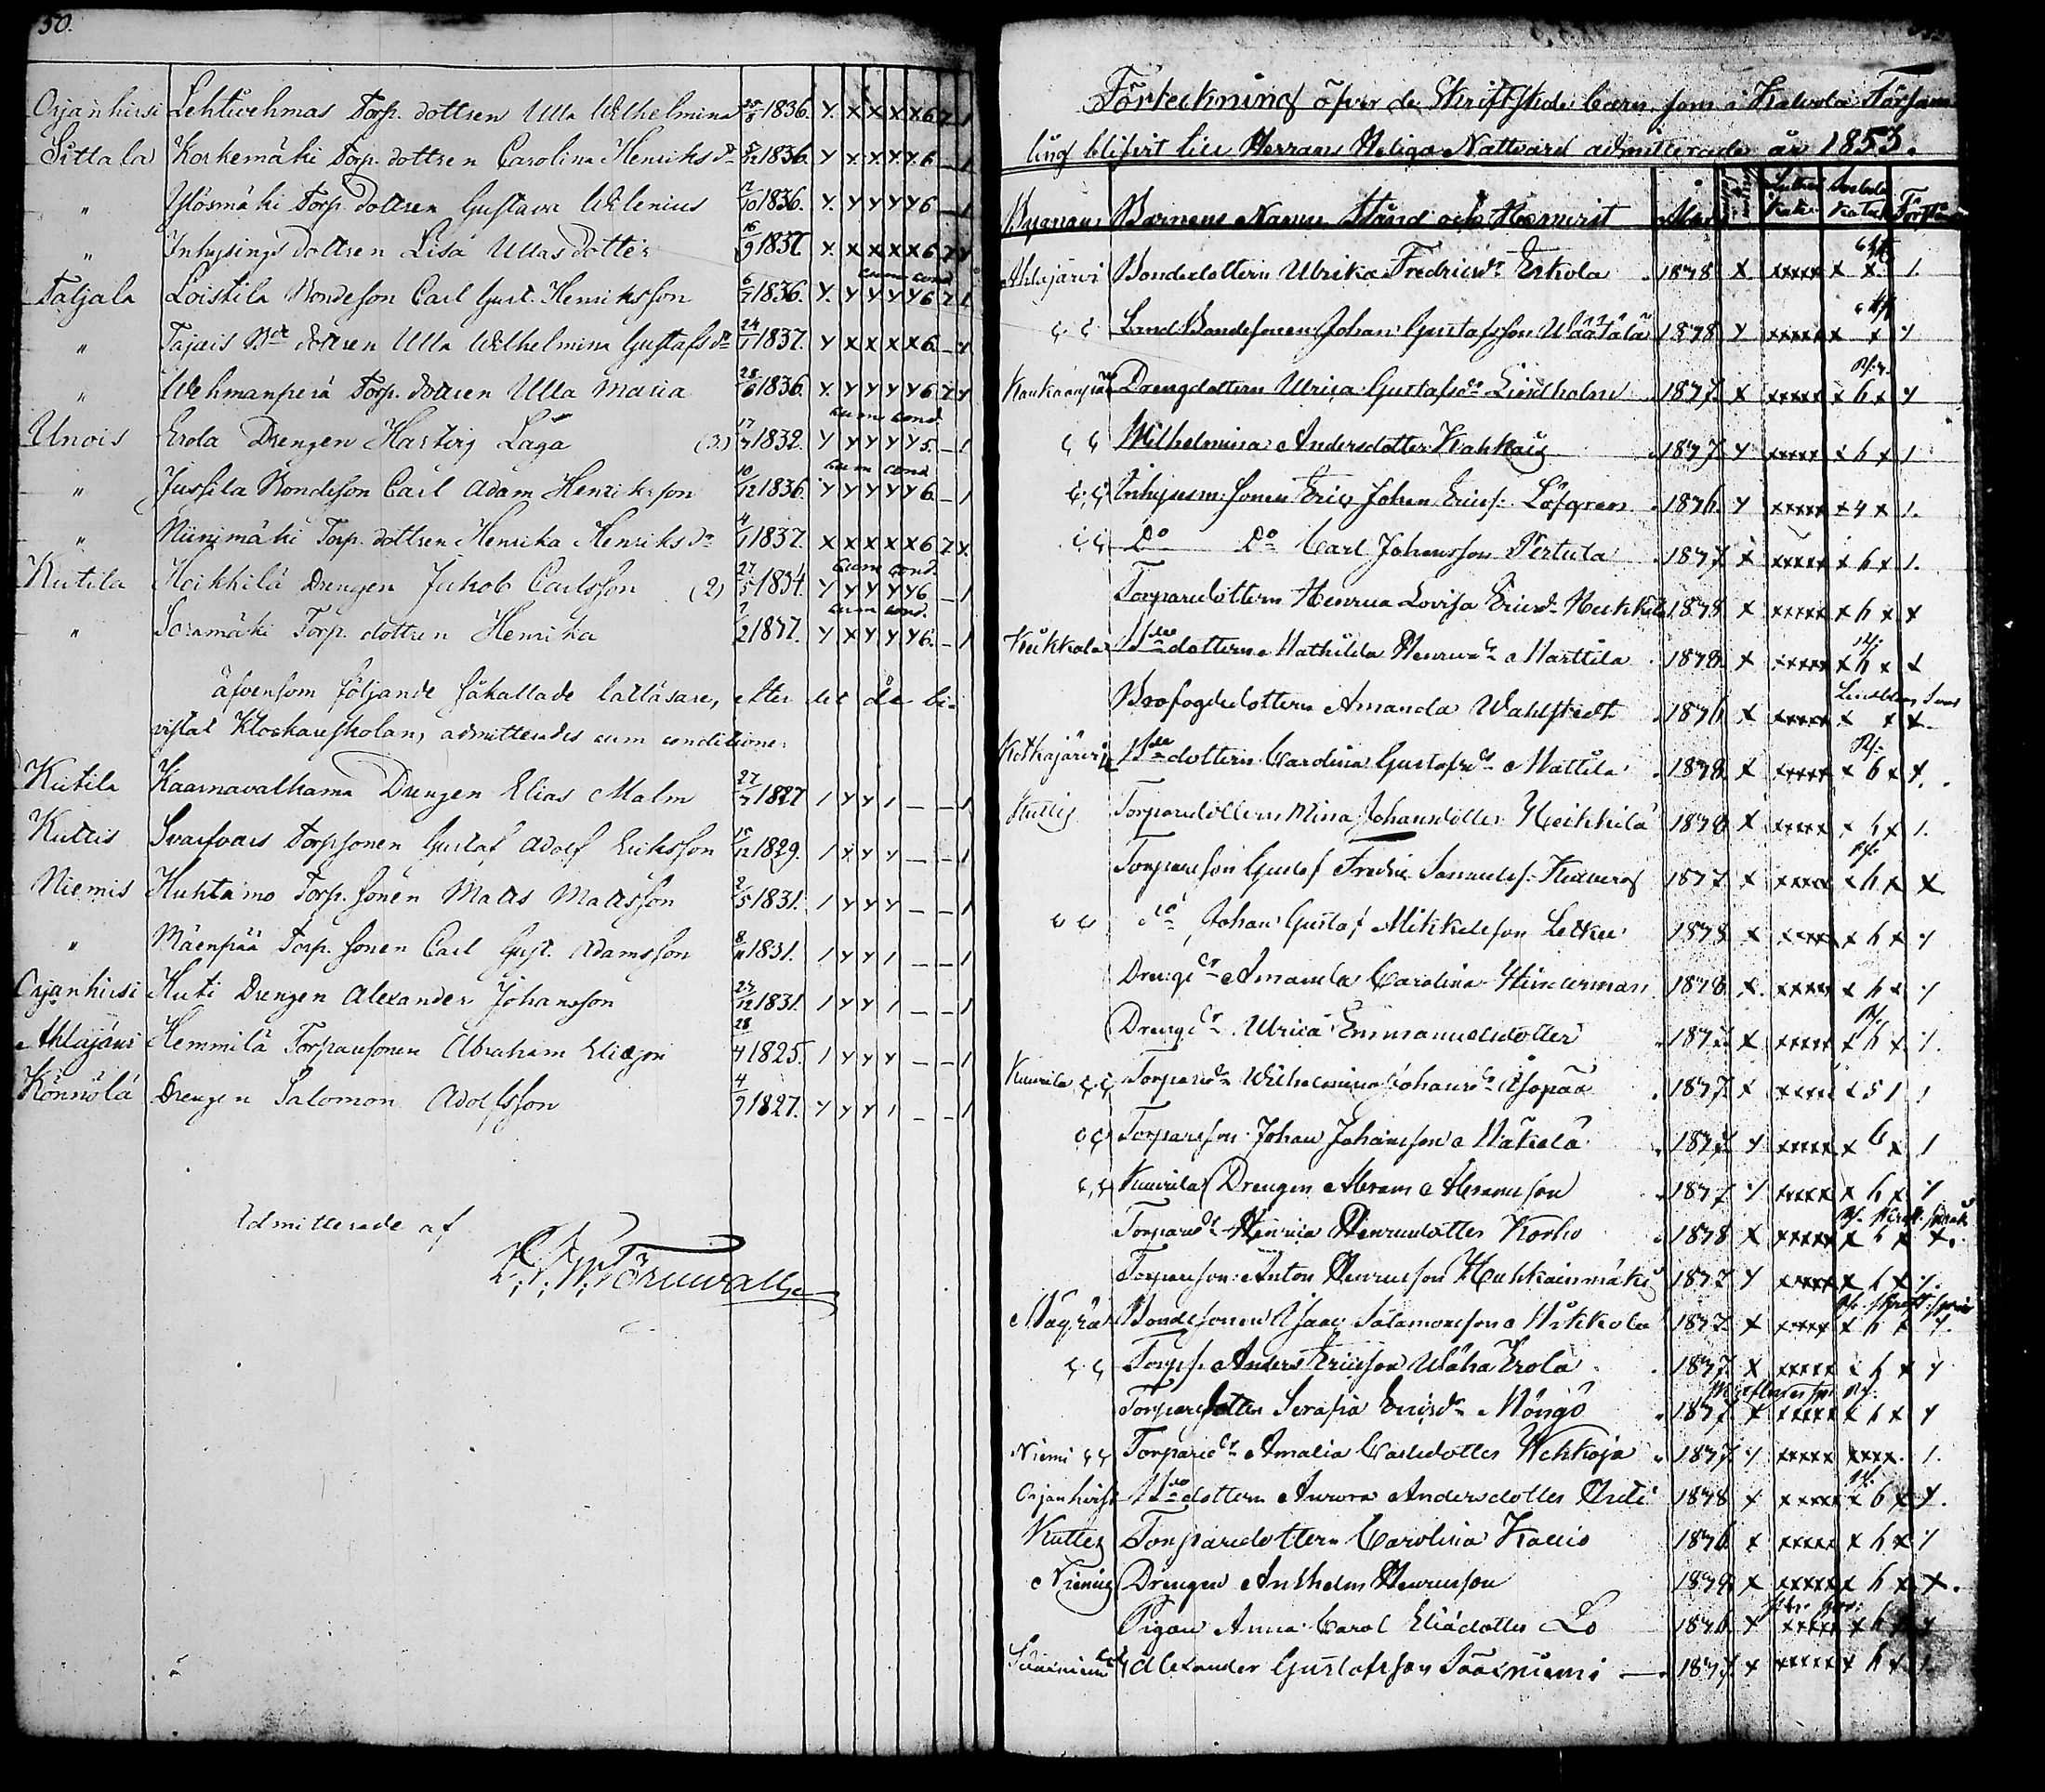 50.
Orjanhirsi Lehtivehmas Torp. dottren Ulla Wilhelmina 25/5 1836. Y. X X X X 6 7 1
Sittala Korkemäki Torp. dottren Carolina Henriksdr 1836. Y X X Y Y. 6 _ 1
" Ylösmäki Torp. dottren Gustava Wilenius 12/10 1836. Y. Y Y Y Y 6 _ 1
" Inhysings dottren Lisa Ullasdotter 16/9 1837. Y. X X X X 6 7 Y
cum cond
Taljala Loistila Bondeson Carl Gust. Henriksson 6/7 1836. Y. Y Y Y Y 6 7 1
" Tajais Bde dottren Ulla Wilhelmina Gustafsdr 24/1 1837. Y X X X X 6. _ Y
" Wehmanperä Torp. dottren Ulla Maria 28/6 1836. Y. Y Y Y Y 6 7 Y
cum cond.
Unois Erola Drengen Hartvig Laga (3) 17/7 1832. Y Y Y Y Y 5. _ 1
cum cond
" Jussila Bondeson Carl Adam Henriksson 10/12 1836. Y Y Y Y Y 6. _ 1
" Niinimäki Torp. dottren Henrika Henriksdr 4/1 1837. X X X X X 6 7 Y.
cum cond.
Kutila Heikkilä Drengen Jakob Carlsson (2) 27/5 1834. Y Y Y Y Y 6 _ 1
cum cond.
" Soramäki Torp. dottren Henrika 7/2 1837. Y X Y Y Y 6. _ 1
äfvensom följande såkallade latläsare, efter det de bi-
vistat Klockareskolan, admitterades cum conditione:
Kutila Kaarnavalkama Drengen Elias Malm 27/7 1827 1 Y Y 1 _ _ 1
Kuttis Svarfvars Torpsonen Gustaf Adolf Eriksson 15/12 1829. 1 Y Y Y _ _ 1
Niemis Huhtamo Torp. sonen Matts Mattsson 2/5 1831. 1 Y Y Y _ _ 1
" Mäenpää Torp. sonen Carl Gust. Adamsson 8/11 1831. 1 Y Y 1 _ _ 1
Orjanhirsi Huti Drengen Alexander Johansson 27/12 1831. 1 Y Y 1 _ _ 1
Ahlajärvi Hemmilä Torparesonen Abraham Eliæson 28/4 1825. 1 Y Y Y _ _ 1
Könnölä Drengen Salomon Adolfsson 4/9 1827. Y Y Y 1 _ _ 1
Admitterade af
Törnwall
Förteckning öfver de Skriftskole barn, som i Kalvola Försam
ling blifvit till Herrans Heliga Nattvard admitterade år 1853.
Byanamn Barnens Namn Stånd och Hemvist
Ahlajärvi Bondedottern Ulrika Fredricsdr Erkola 1838 X xxxxx x x. 1.
Land Bondesonen Johan Gustafsson Wäätälä 1838 Y xxxxx x x Y
Drengdottern Ulrica Gustafsdr Lindholm 1837. X xxxxx x 6 x Y
Wilhelmina Andersdotter Kahkais 1837 Y xxxxx x 6 x 1
Inhysesm. sonen Eric Johan Erics. Löfgren 1836. Y xxxxx x 4 x 1.
Do Do Carl Johansson Pertula 1837 X xxxxx x 6 x 1.
Torparedottern Henrica Lovisa Ericsdr Heikkilä 1838 X xxxxx x 6 x x
Keikkala Bdedottern Mathilda Henricsdr Marttila 1838 X xxxxx x 6 x x
Brofogdedottern Amanda Wahlstedt 1836 X xxxxx x x x
Kotkajärvi Bdedottern Carolina Gustafsdr Mattila 1838 X xxxxx x 6 x Y.
Kuttis Torparedottern Mina Johansdotter Heikkilä 1838 X xxxxx x 6 x 1.
Torpareson Gustaf Fredric Samuels. 1837 X xxxxx x 6 x X
do Johan Gustaf Mikkelsson Letku 1838 X xxxxx x 6 x Y
Drengdr Amanda Carolina Hinderman 1838 X xxxxx x 6 x Y
Drengdr Ulrica Emmanuelsdotter 1837. X xxxxx x 6 x 1.
Kuurila Torparedr Wilhelmina Johansdr Isopää 1837. X xxxxx x 5 1 1
Torpareson Johan Johansson Mäkelä 1837 Y xxxxx x 6 x 1
Kuurila Drengen Abram Abramsson 1837 Y xxxxx x 6 x Y
Torparedr Henrica Henricsdotter Korho 1838 X xxxxx x 6 x x.
Torpareson Anton Henricsson Huhkainmäki 1837 Y xxxxx x 6 x Y.
Bondesonen Isaac Salamonsson Mikkola 1837. X xxxxx x 6 x Y.
Torps. Anders Ericsson Wäha Erola 1837 X xxxxx x 6 x Y
Torparedotter Serafia Ericsdr 1837 X xxxxx x 6 x Y
Niemi Torparedr Amalia Carlsdotter Wehkoja 1837 Y xxxxx xxxx. 1.
Orjanhirsi Bdedottern Aurora Andersdotter Huti 1838 Y xxxxx x 6 x Y.
Kuttis Torparedottern Carolina Kallio 1836 X xxxxx x 6 x Y
Niemis Drengen Anshelm Henricsson 1838 X xxxxx x 6 x X.
Pigan Anna Carol Eliædotter Lo 1836 Y xxxxx x 6 x Y
Sääxniemi Alexander Gustafsson Sääxniemi 1837 X xxxxx x 6 x 1.